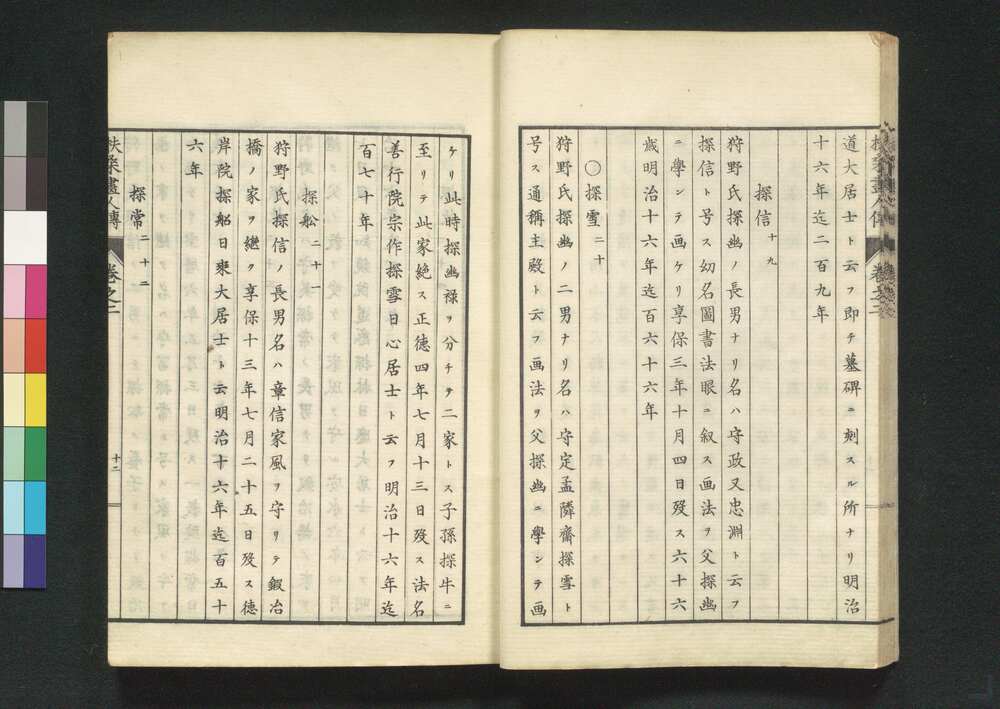 道大居士ト云フ即チ墓碑ニ刻スル所ナリ明治
十六年迄二百九年
探信 十九
狩野氏探幽ノ長男ナリ名ハ守政又忠淵ト云フ
探信ト号ス幼名圖書法眼ニ叙ス画法ヲ父探幽
ニ學ンテ画ケリ享保三年十月四日殁ス六十六
歳明治十六年迄百六十六年
〇探雪 二十
狩野氏探幽ノ二男ナリ名ハ守定孟隣齋探雪ト
号ス通稱主殿ト云フ画法ヲ父探幽ニ學ンテ画
ケリ此時探幽禄ヲ分チテ二家トス子孫探牛ニ
至リテ此家絶ス正徳四年七月十三日殁ス法名
善行院宗作探雪日心居士ト云フ明治十六年迄
百七十年
探舩 二十一
狩野氏探信ノ長男名ハ章信家風ヲ守リテ鍜冶
橋ノ家ヲ繼ク享保十三年七月二十五日殁ス徳
岸院探船日乘大居士ト云明治十六年迄百五十
六年
探常 二十二
扶桑畫人傳 卷之二 十二